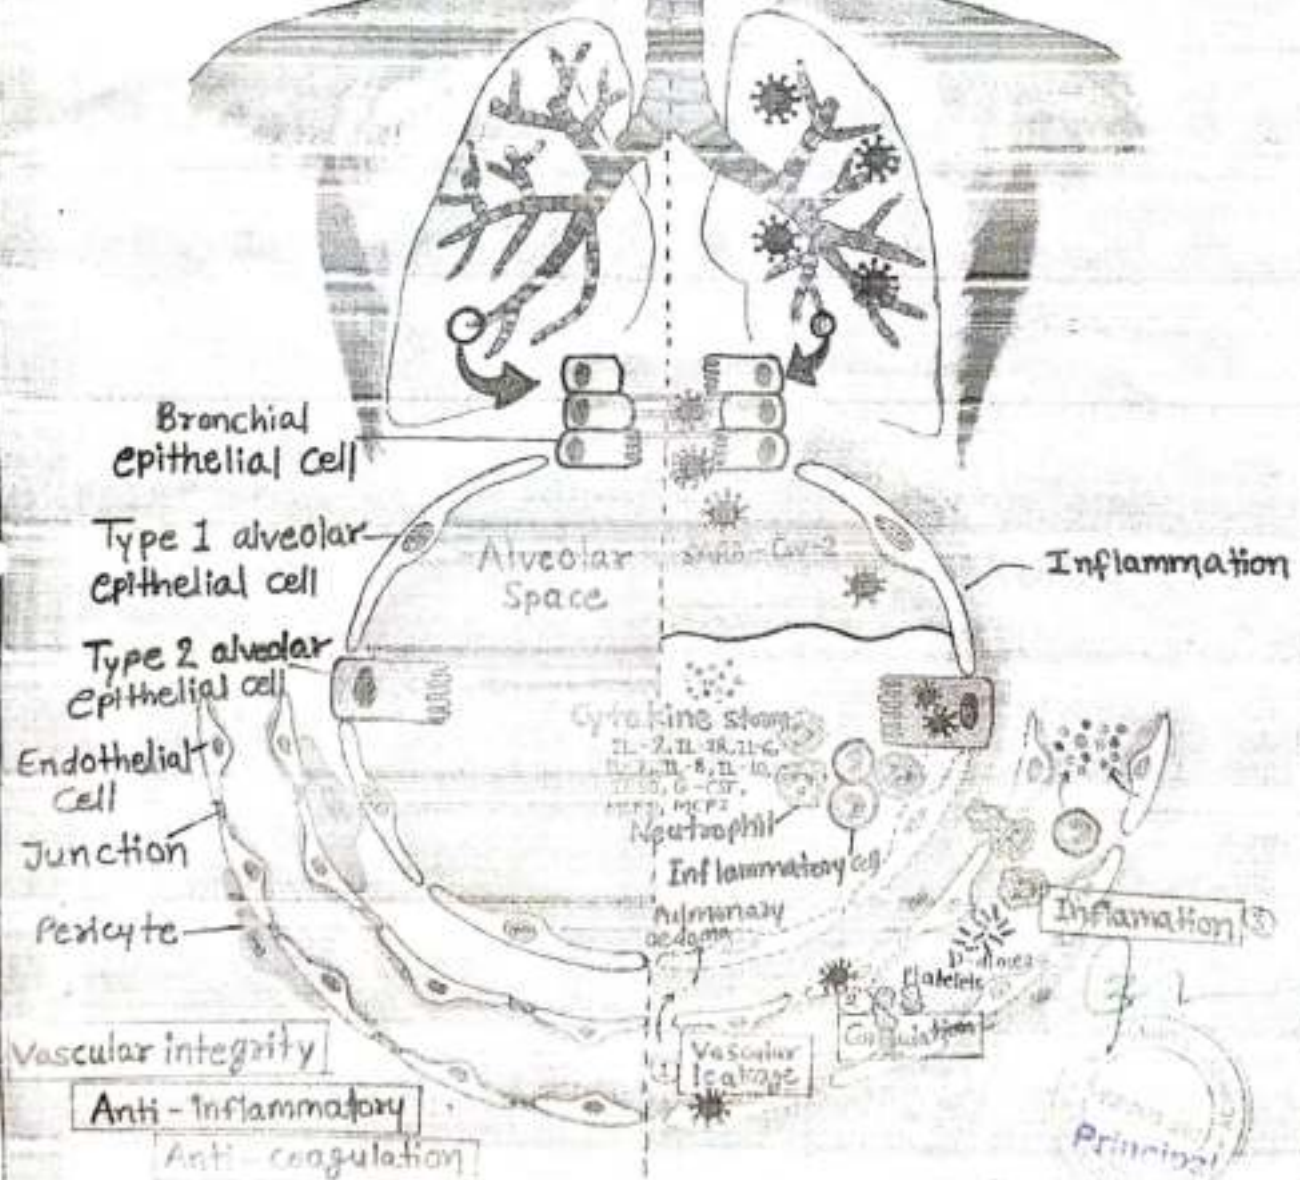 Bronchial
epithelial cell
Type 1 alveolar
epithelial cell
Type 2 alveolar
epithelial cell
Endothelial
cell
Junction
Pericyte
Vascular integrity
Anti-inflammatory
Anti-coagulation
Alveolar
Space
-Cov-2
Inflammation
Cytokine storm
Neutrophil
Inflammatory cell
Pulmonary
oedoma
D-dimer
Platelets
Inflamation
Vascular
leakage
Principal